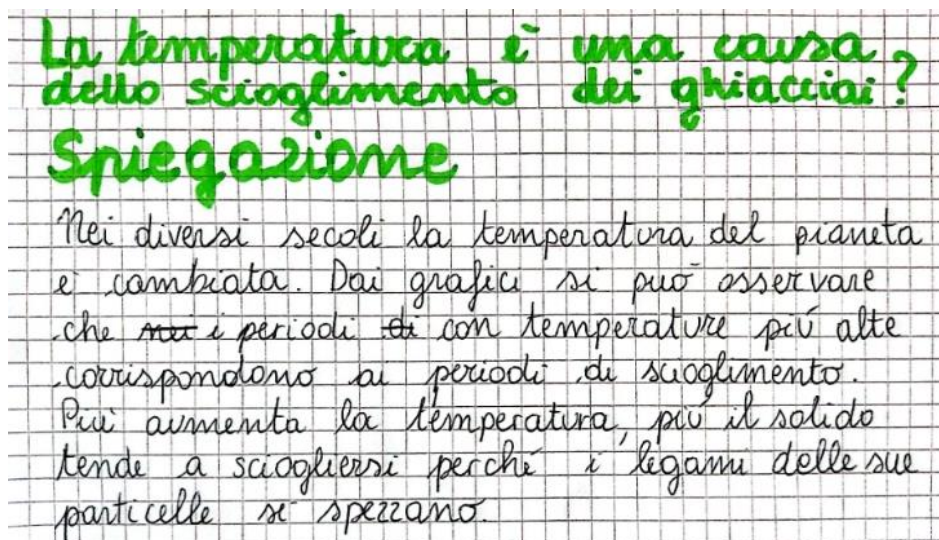 La temperatura è una causa
dello scioglimento dei ghiacciai?
Spiegazione
Nei diversi secoli la temperatura del pianeta
è cambiata. Dai grafici si può osservare
che nei i periodi di con temperature più alte
corrispondono ai periodi di scioglimento.
Più aumenta la temperatura, più il solido
tende a sciogliersi perché i legami delle sue
particelle si spezzano.